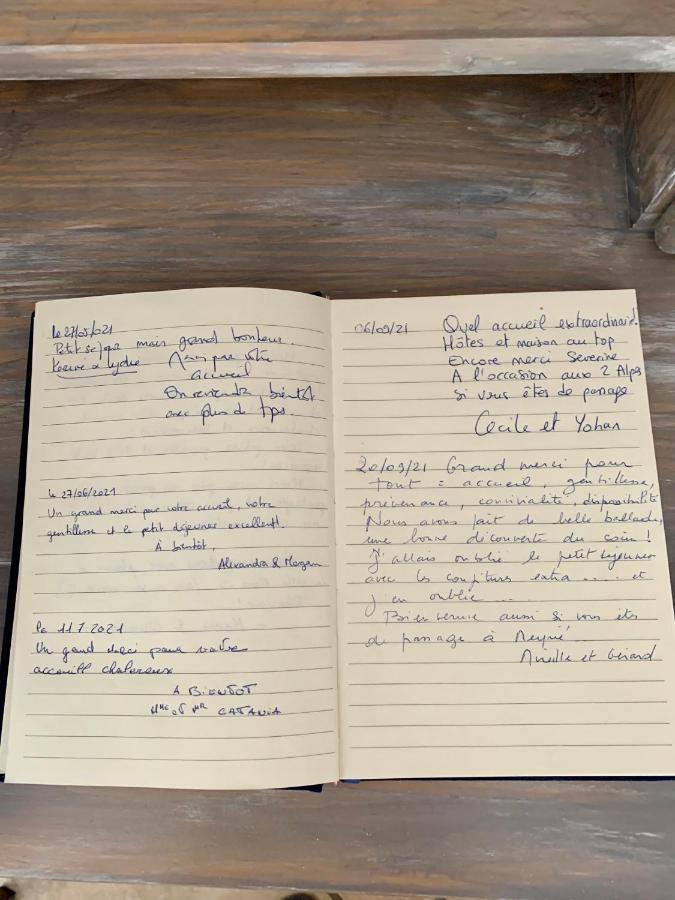 Le 27/05/2021
Petit séjour mais grand bonheur.
& Lydie Merci pour votre
accueil
On reviendra bientôt
avec plus de tps.
Le 27/06/2021
Un grand merci pour votre accueil, votre
gentillesse et le petit déjeuner excellent!
À bientôt,
Alexandra & Morgan
Le 11.7.2021
Un grand merci pour votre
accueill chalereux
A BIENTOT
Mme et Mr CATANIA
06/09/21 Quel accueil extraordinaire!
Hôtes et maison au top
Encore merci Severine
A l'occasion aux 2 Alpes
si vous êtes de passage
Cecile et Yohan
20/09/21 Grand merci pour
tout : accueil, gentillesse,
prévenance, convivialité, disponibilité
Nous avons fait de belle ballade,
une bonne découverte du coin !
J'allais oublié le petit déjeuner
avec les confitures extra ..... et
j'en oublie ....
Bienvenue aussi si vous êts
de passage à
Mireille et Gérard